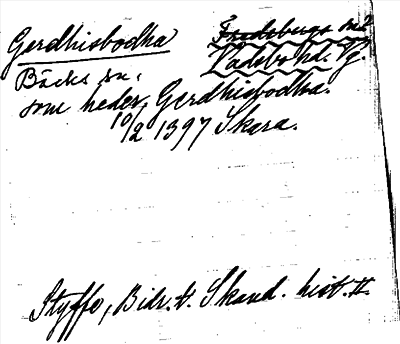 Gerdhisbodha
Fredsbergs sn?
Vadsbo hd. Vg.
Bäcks sn.
som heder, Gerdhisbodha.
10/2 1397 Skara.
Styffe, Bidr. t. Skand. hist. II.